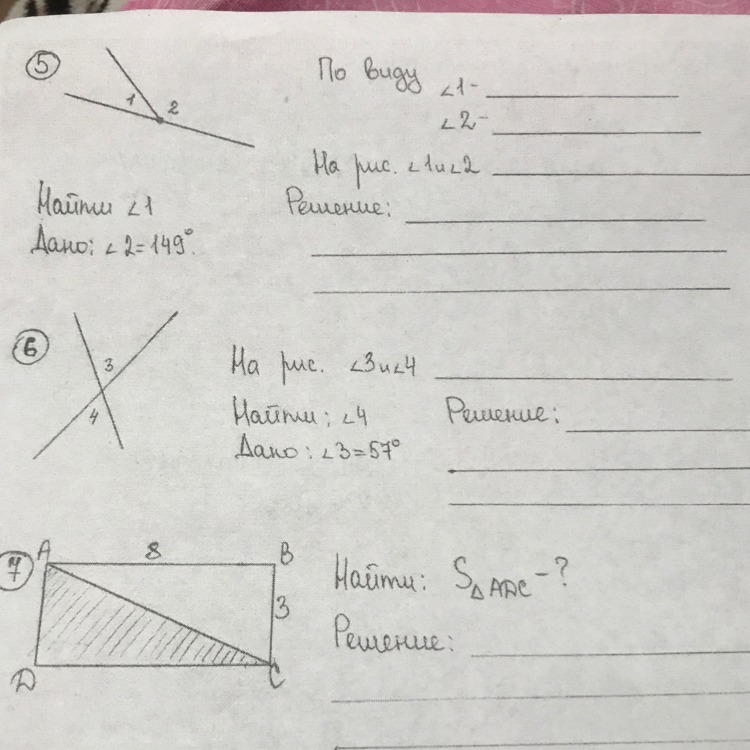 5
1 2
По виду ∠1-
∠2-
На рис. ∠1 и ∠2
Найти ∠1
Дано: ∠2=149°.
Решение:
6
3
4
На рис. ∠3 и ∠4
Найти: ∠4
Дано: ∠3=57°
Решение:
7
A 8 B
3
D C
Найти: S△ADC-?
Решение: